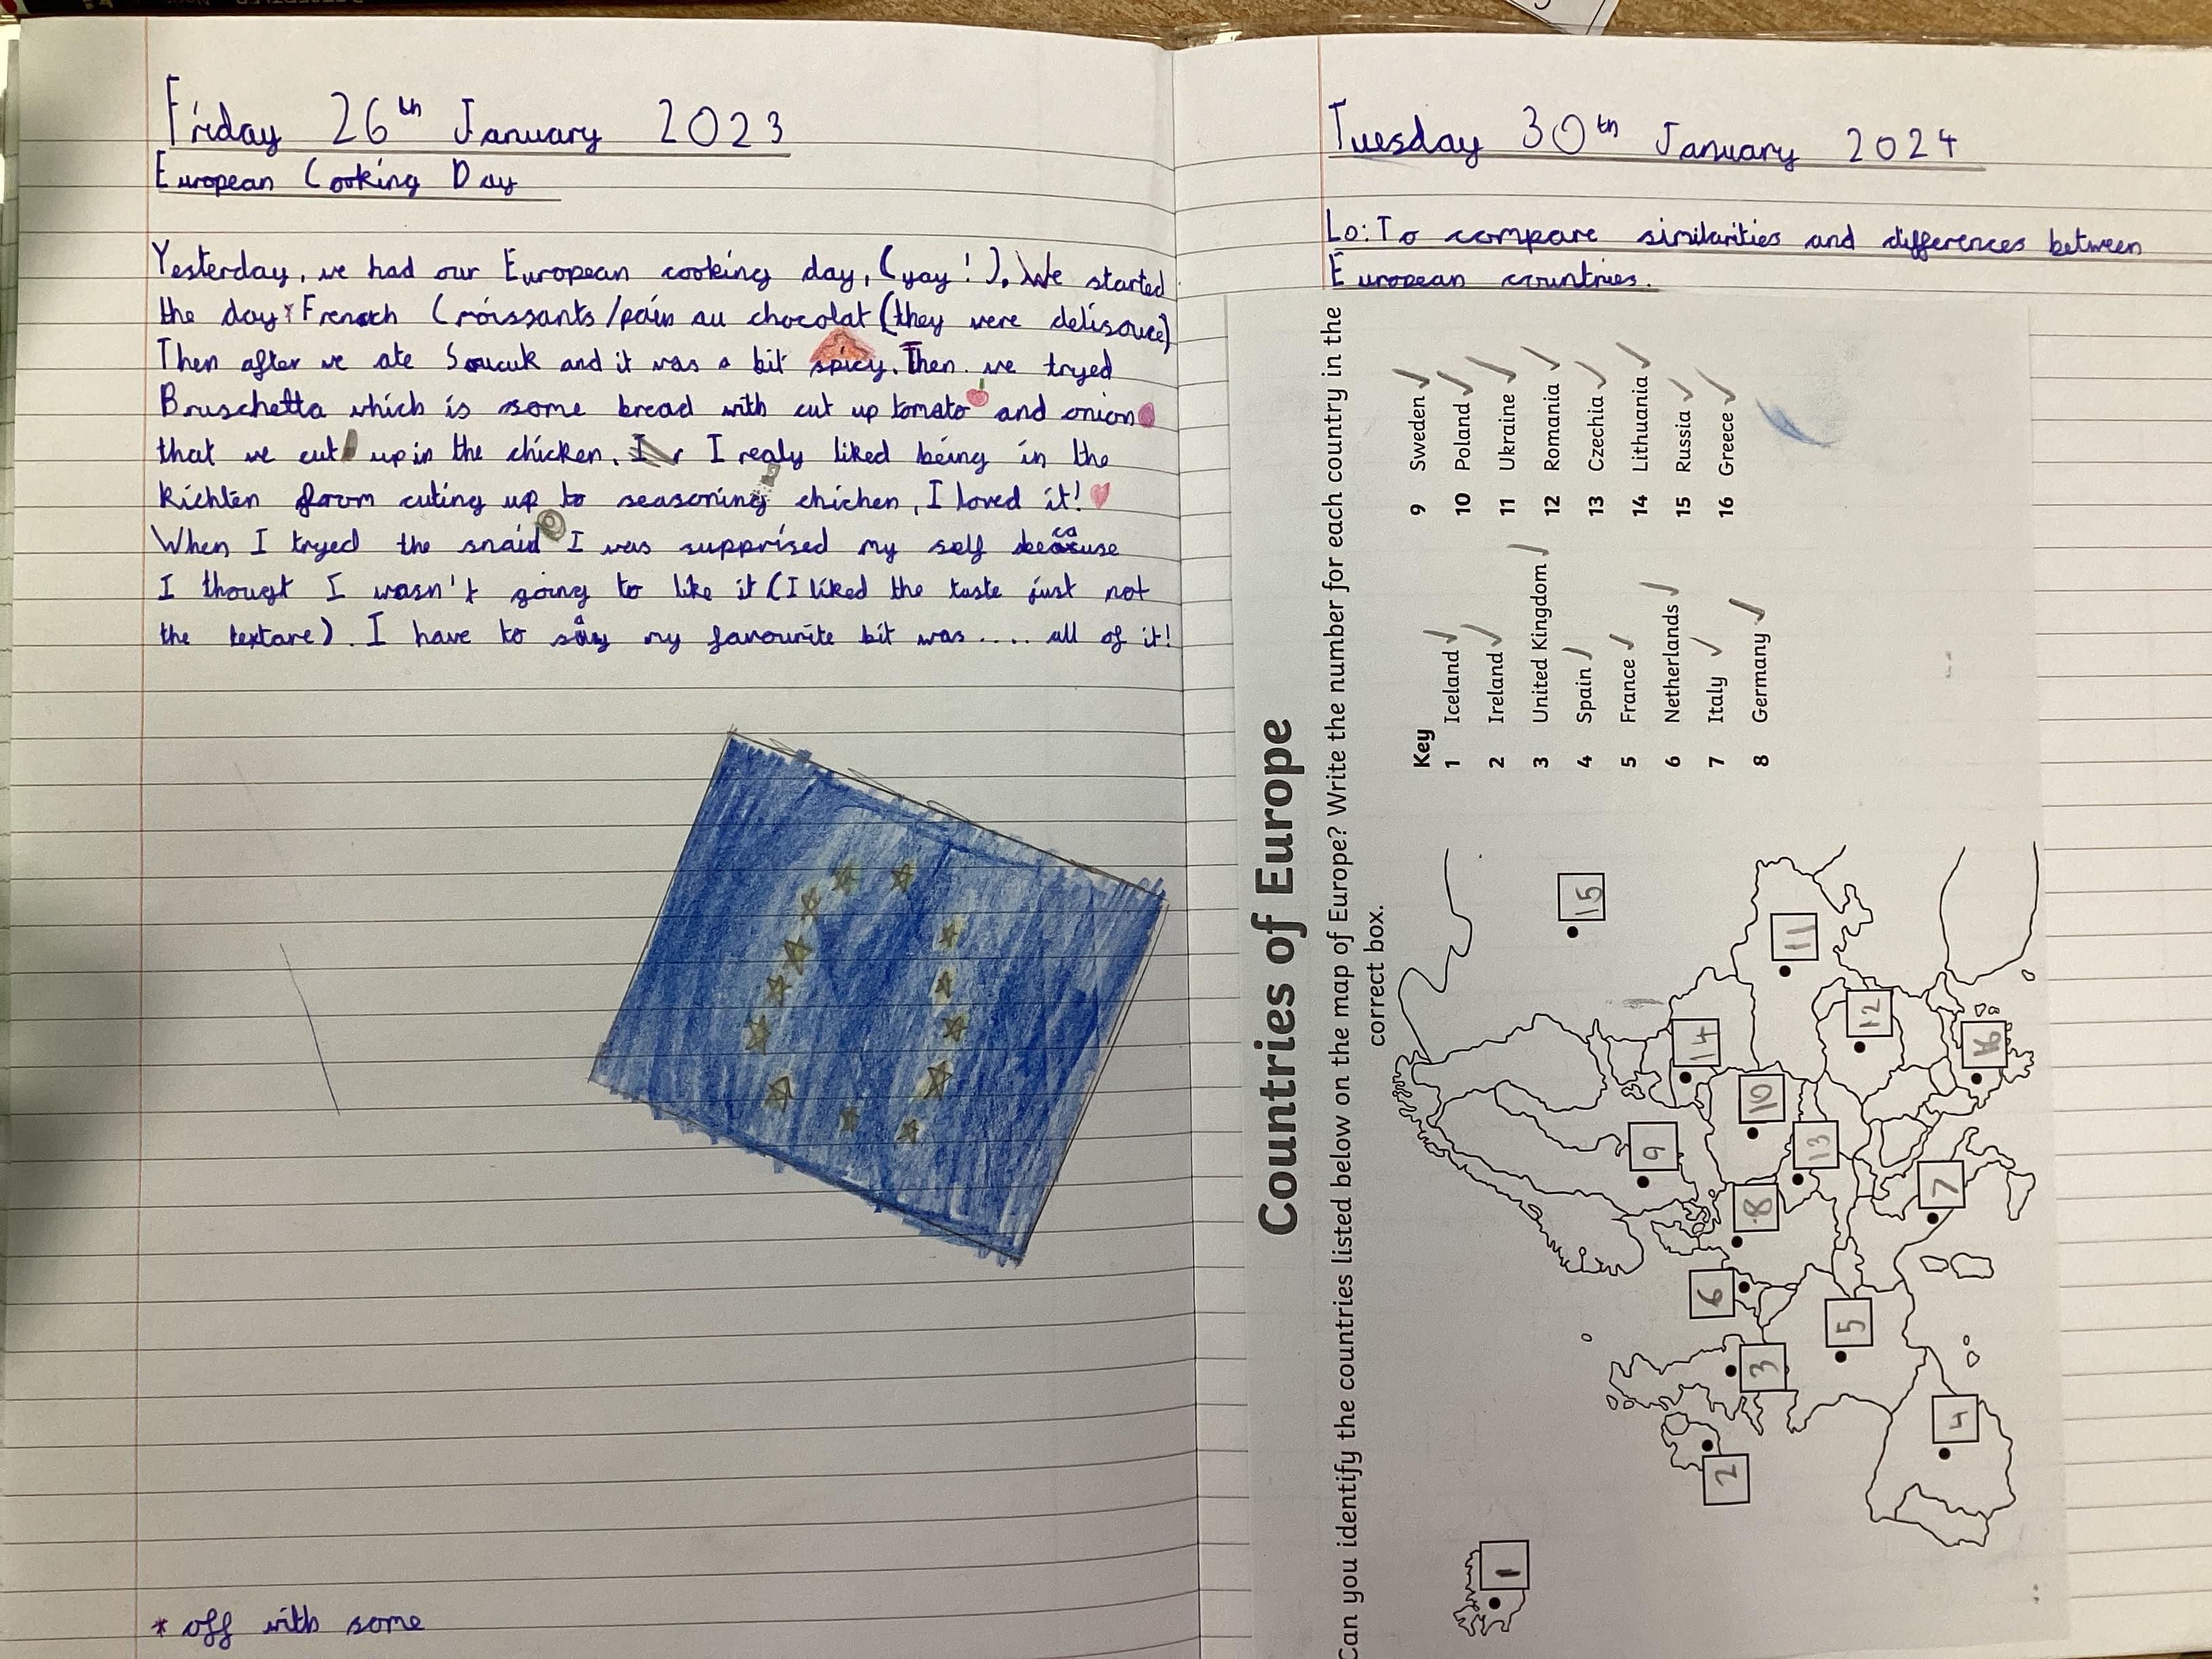 Friday 26th January 2023
European Cooking Day
Yesterday, we had our European cooking day, (yay!). We started
the day* French Croissants/pain au chocolat (they were delisouce)
Then after we ate Soucuk and it was a bit spicy. Then we tryed
Bruschetta which is some bread with cut up tomato and onion
that we cut up in the chicken. I realy liked being in the
kichten from cuting up to seasoning chichen, I loved it!
When I tryed the snaid I was supprised my self because
I thougt I wasn't going to like it (I liked the taste just not
the textare). I have to say my favourite bit was.... all of it!
* off with some
Tuesday 30th January 2024
Lo: To compare similarities and differences between
European countries.
Countries of Europe
Can you identify the countries listed below on the map of Europe? Write the number for each country in the
correct box.
Key
1 Iceland
2 Ireland
3 United Kingdom
4 Spain
5 France
6 Netherlands
7 Italy
8 Germany
9 Sweden
10 Poland
11 Ukraine
12 Romania
13 Czechia
14 Lithuania
15 Russia
16 Greece
1
2
3
4
5
6
7
8
9
10
11
12
13
14
15
16